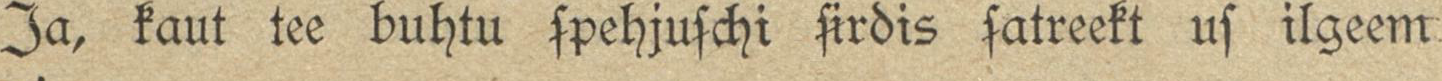 Ja, kaut tee buhtu ſpehjuſchi ſirdis ſatreekt uſ ilgeem